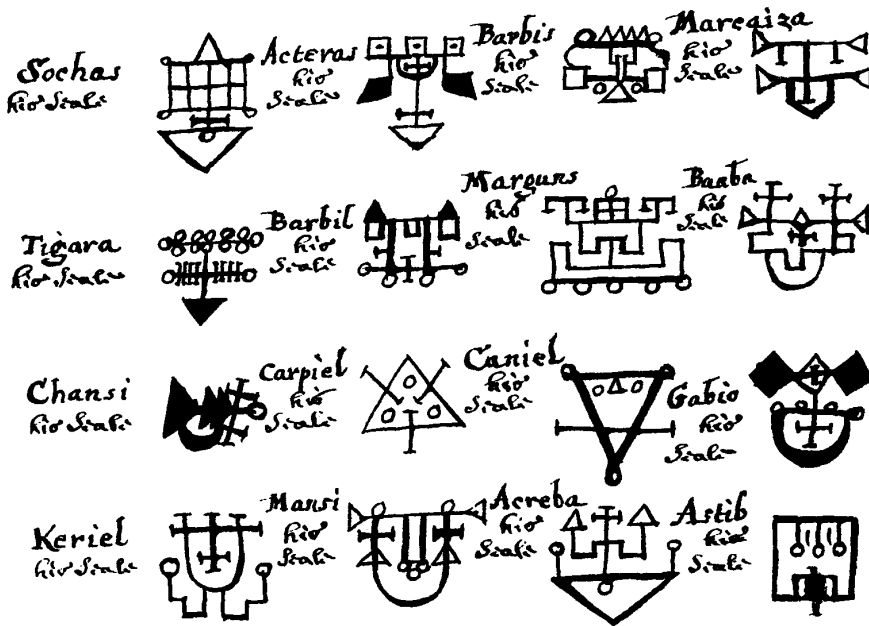 Sochas
his Seale
Acteras
his
Seale
Barbis
his
Seale
Mareaiza
his
Seale
Tigara
his Seale
Barbil
his
Seale
Marguns
his
Seale
Baaba
his
Seale
Chansi
his Seale
Carpiel
his
Seale
Caniel
his
Seale
Gabio
his
Seale
Keriel
his Seale
Mansi
his
Seale
Acreba
his
Seale
Astib
his
Seale